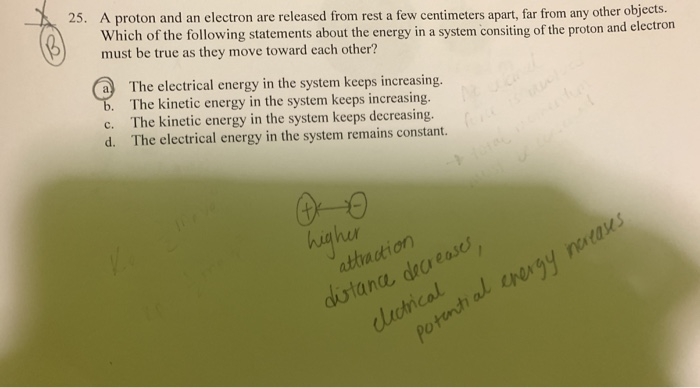 B
25. A proton and an electron are released from rest a few centimeters apart, far from any other objects.
Which of the following statements about the energy in a system consiting of the proton and electron
must be true as they move toward each other?
a. The electrical energy in the system keeps increasing.
b. The kinetic energy in the system keeps increasing.
c. The kinetic energy in the system keeps decreasing.
d. The electrical energy in the system remains constant.
+ -
higher
attraction
distance decreases,
electrical
potential energy increases